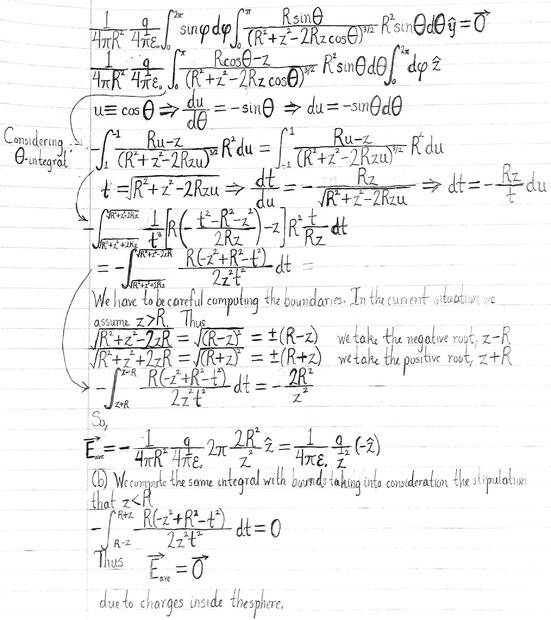 1/(4πR²) q/(4πε₀) ∫₀^{2π} sinφdφ ∫₀^{π} Rsinθ/(R²+z²-2Rzcosθ)^{3/2} R²sinθdθ ŷ = 0⃗
1/(4πR²) q/(4πε₀) ∫₀^{π} (Rcosθ-z)/(R²+z²-2Rzcosθ)^{3/2} R²sinθdθ ∫₀^{2π} dφ ẑ
u ≡ cosθ ⇒ du/dθ = -sinθ ⇒ du = -sinθdθ
Considering
θ-integral
-∫₁^{-1} (Ru-z)/(R²+z²-2Rzu)^{3/2} R²du = ∫₋₁^{1} (Ru-z)/(R²+z²-2Rzu)^{3/2} R²du
t = √(R²+z²-2Rzu) ⇒ dt/du = - Rz/√(R²+z²-2Rzu) ⇒ dt = - Rz/t du
-∫_{√(R²+z²+2Rz)}^{√(R²+z²-2Rz)} 1/t³ [R(-(t²-R²-z²)/(2Rz))-z] R² t/(Rz) dt
= -∫_{√(R²+z²+2Rz)}^{√(R²+z²-2Rz)} R(-z²+R²-t²)/(2z²t²) dt =
We have to be careful computing the boundaries. In the current situation we
assume z>R. Thus
√(R²+z²-2zR) = √((R-z)²) = ±(R-z) we take the negative root, z-R
√(R²+z²+2zR) = √((R+z)²) = ±(R+z) we take the positive root, z+R
-∫_{z+R}^{z-R} R(-z²+R²-t²)/(2z²t²) dt = - 2R²/z²
So,
E⃗ave = - 1/(4πR²) q/(4πε₀) 2π 2R²/z² ẑ = 1/(4πε₀) q/z² (-ẑ)
(b) We compute the same integral with bounds taking into consideration the stipulation
that z<R
-∫_{R-z}^{R+z} R(-z²+R²-t²)/(2z²t²) dt = 0
Thus E⃗ave = 0⃗
due to charges inside the sphere.